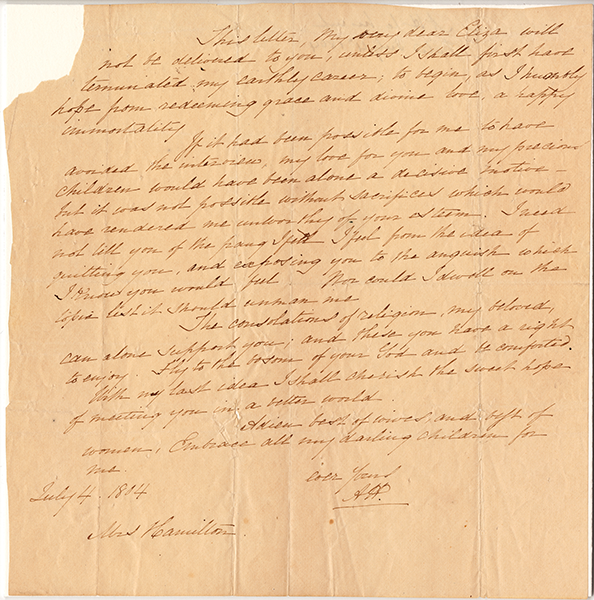 This letter, my very dear Eliza will
not be delivered to you, unless I shall first have
terminated my earthly career; to begin, as I humbly
hope from redeeming grace and divine love, a happy
immortality
If it had been possible for me to have
avoided the interview, my love for you and my precious
children would have been alone a decisive motive –
but it was not possible without sacrifices which would
have rendered me unworthy of your esteem. I need
not tell you of the pang I feel from the idea of
quitting you, and exposing you to the anguish which
I know you would feel Nor could I dwell on the
topic lest it should unman me
The consolations of religion, my beloved,
can alone support you; and these you have a right
to enjoy. Fly to the bosom of your God and be comforted.
With my last idea I shall cherish the sweet hope
of meeting you in a better world.
Adieu best of wives, and best of
women, Embrace all my darling children for
me.
ever Yours
AH.
July 4. 1804
Mrs Hamilton